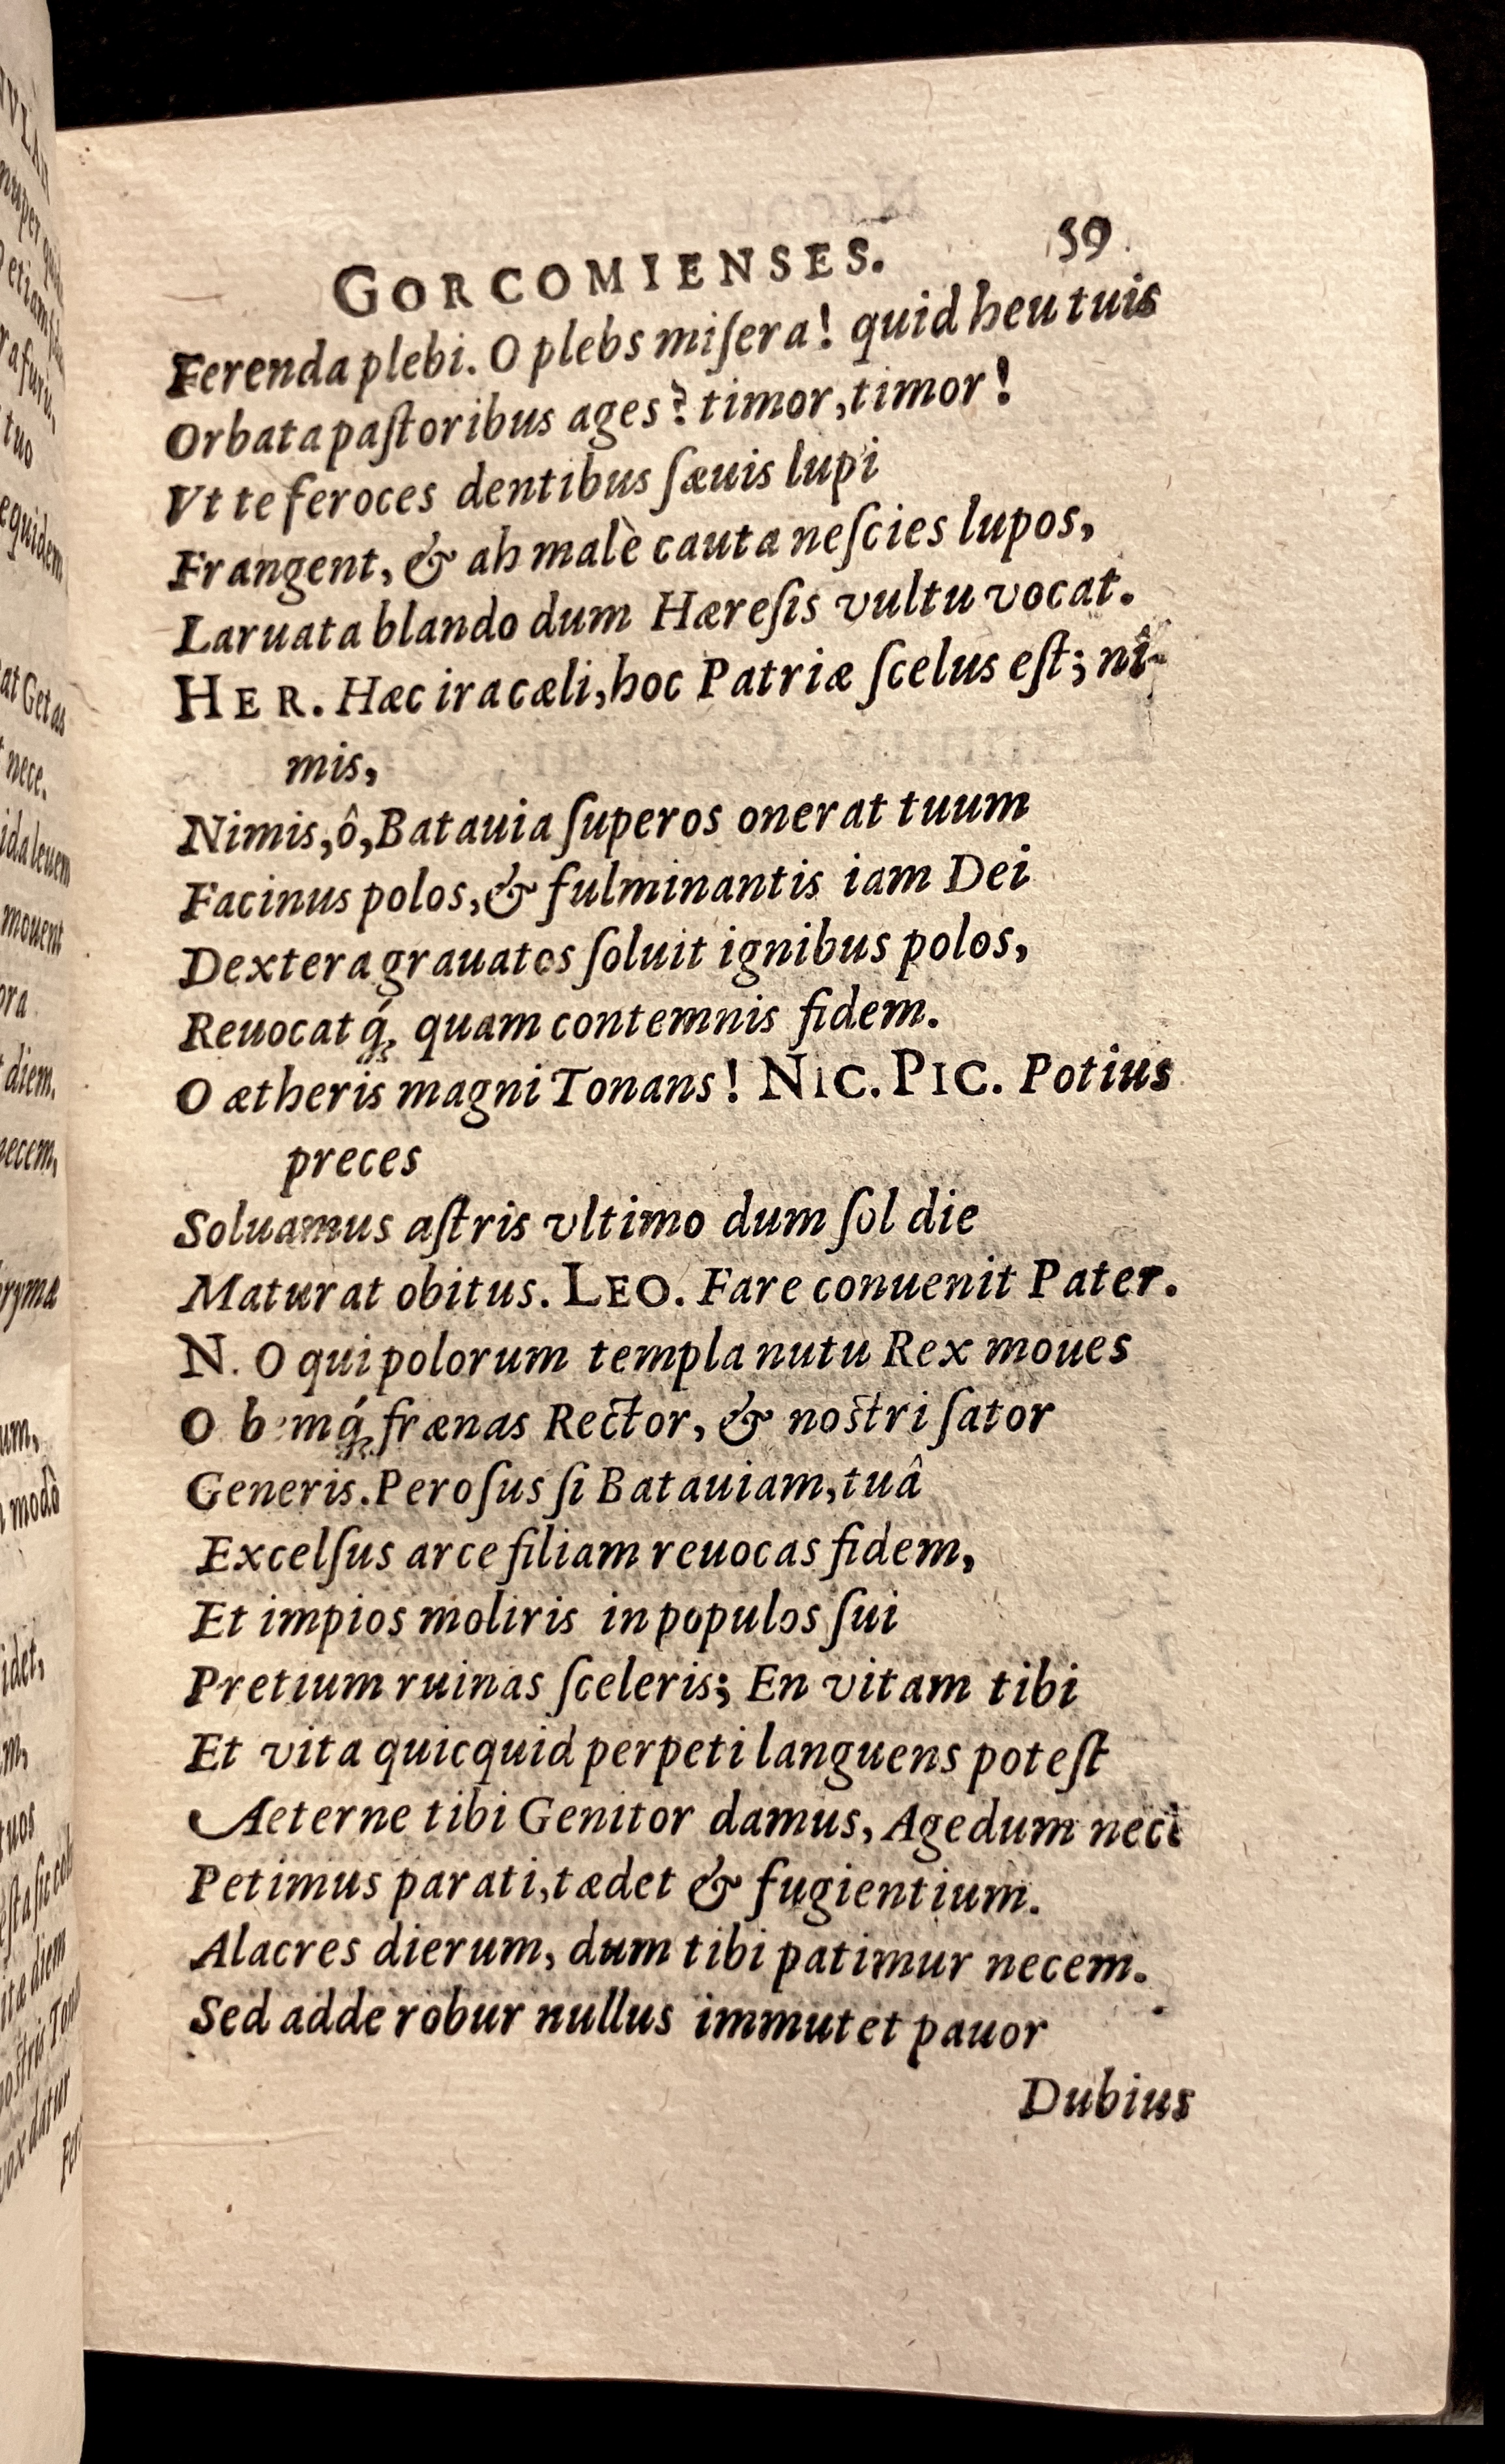 GORCOMIENSES. 59
Ferenda plebi. O plebs miſera! quid heu tuis
Orbata paſtoribus ages? timor, timor!
Vt te feroces dentibus ſæuis lupi
Frangent, & ah malè cauta neſcies lupos,
Laruata blando dum Hæreſis vultu vocat.
HER. Hæc ira cæli, hoc Patriæ ſcelus eſt; ni-
mis,
Nimis, ô, Batauia ſuperos onerat tuum
Facinus polos, & fulminantis iam Dei
Dextera grauatos ſoluit ignibus polos,
Reuocatq́; quam contemnis fidem.
O ætheris magni Tonans! NIC. PIC. Potius
preces
Soluamus aſtris vltimo dum ſol die
Maturat obitus. LEO. Fare conuenit Pater.
N. O qui polorum templa nutu Rex moues
O frænas Rector, & noſtri ſator
Generis. Peroſus ſi Batauiam, tuâ
Excelſus arce filiam reuocas fidem,
Et impios moliris in populos ſui
Pretium ruinas ſceleris; En vitam tibi
Et vita quicquid perpeti languens poteſt
Aeterne tibi Genitor damus, Agedum neci
Petimus parati, tædet & fugientium.
Alacres dierum, dum tibi patimur necem.
Sed adde robur nullus immutet pauor
Dubius